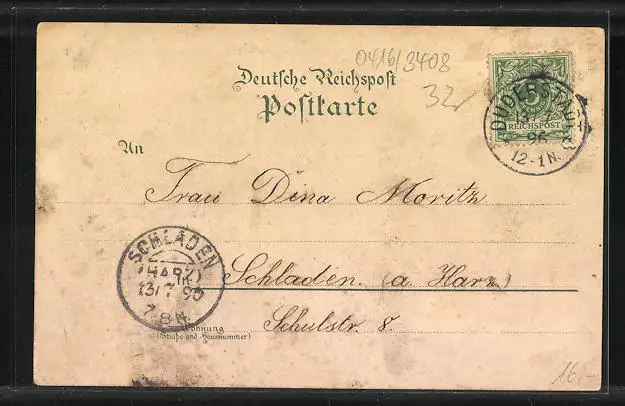 0416/3408
Deutsche Reichspost
Postkarte
32
5
REICHSPOST
DUDERSTADT
13/7
96
12-1N.
An
Frau Dina Moritz
SCHLADEN
(HARZ)
13/7 96
7-8N.
Schladen (a. Harz.)
Schulstr. 8.
Wohnung
(Straße und Hausnummer)
16,-